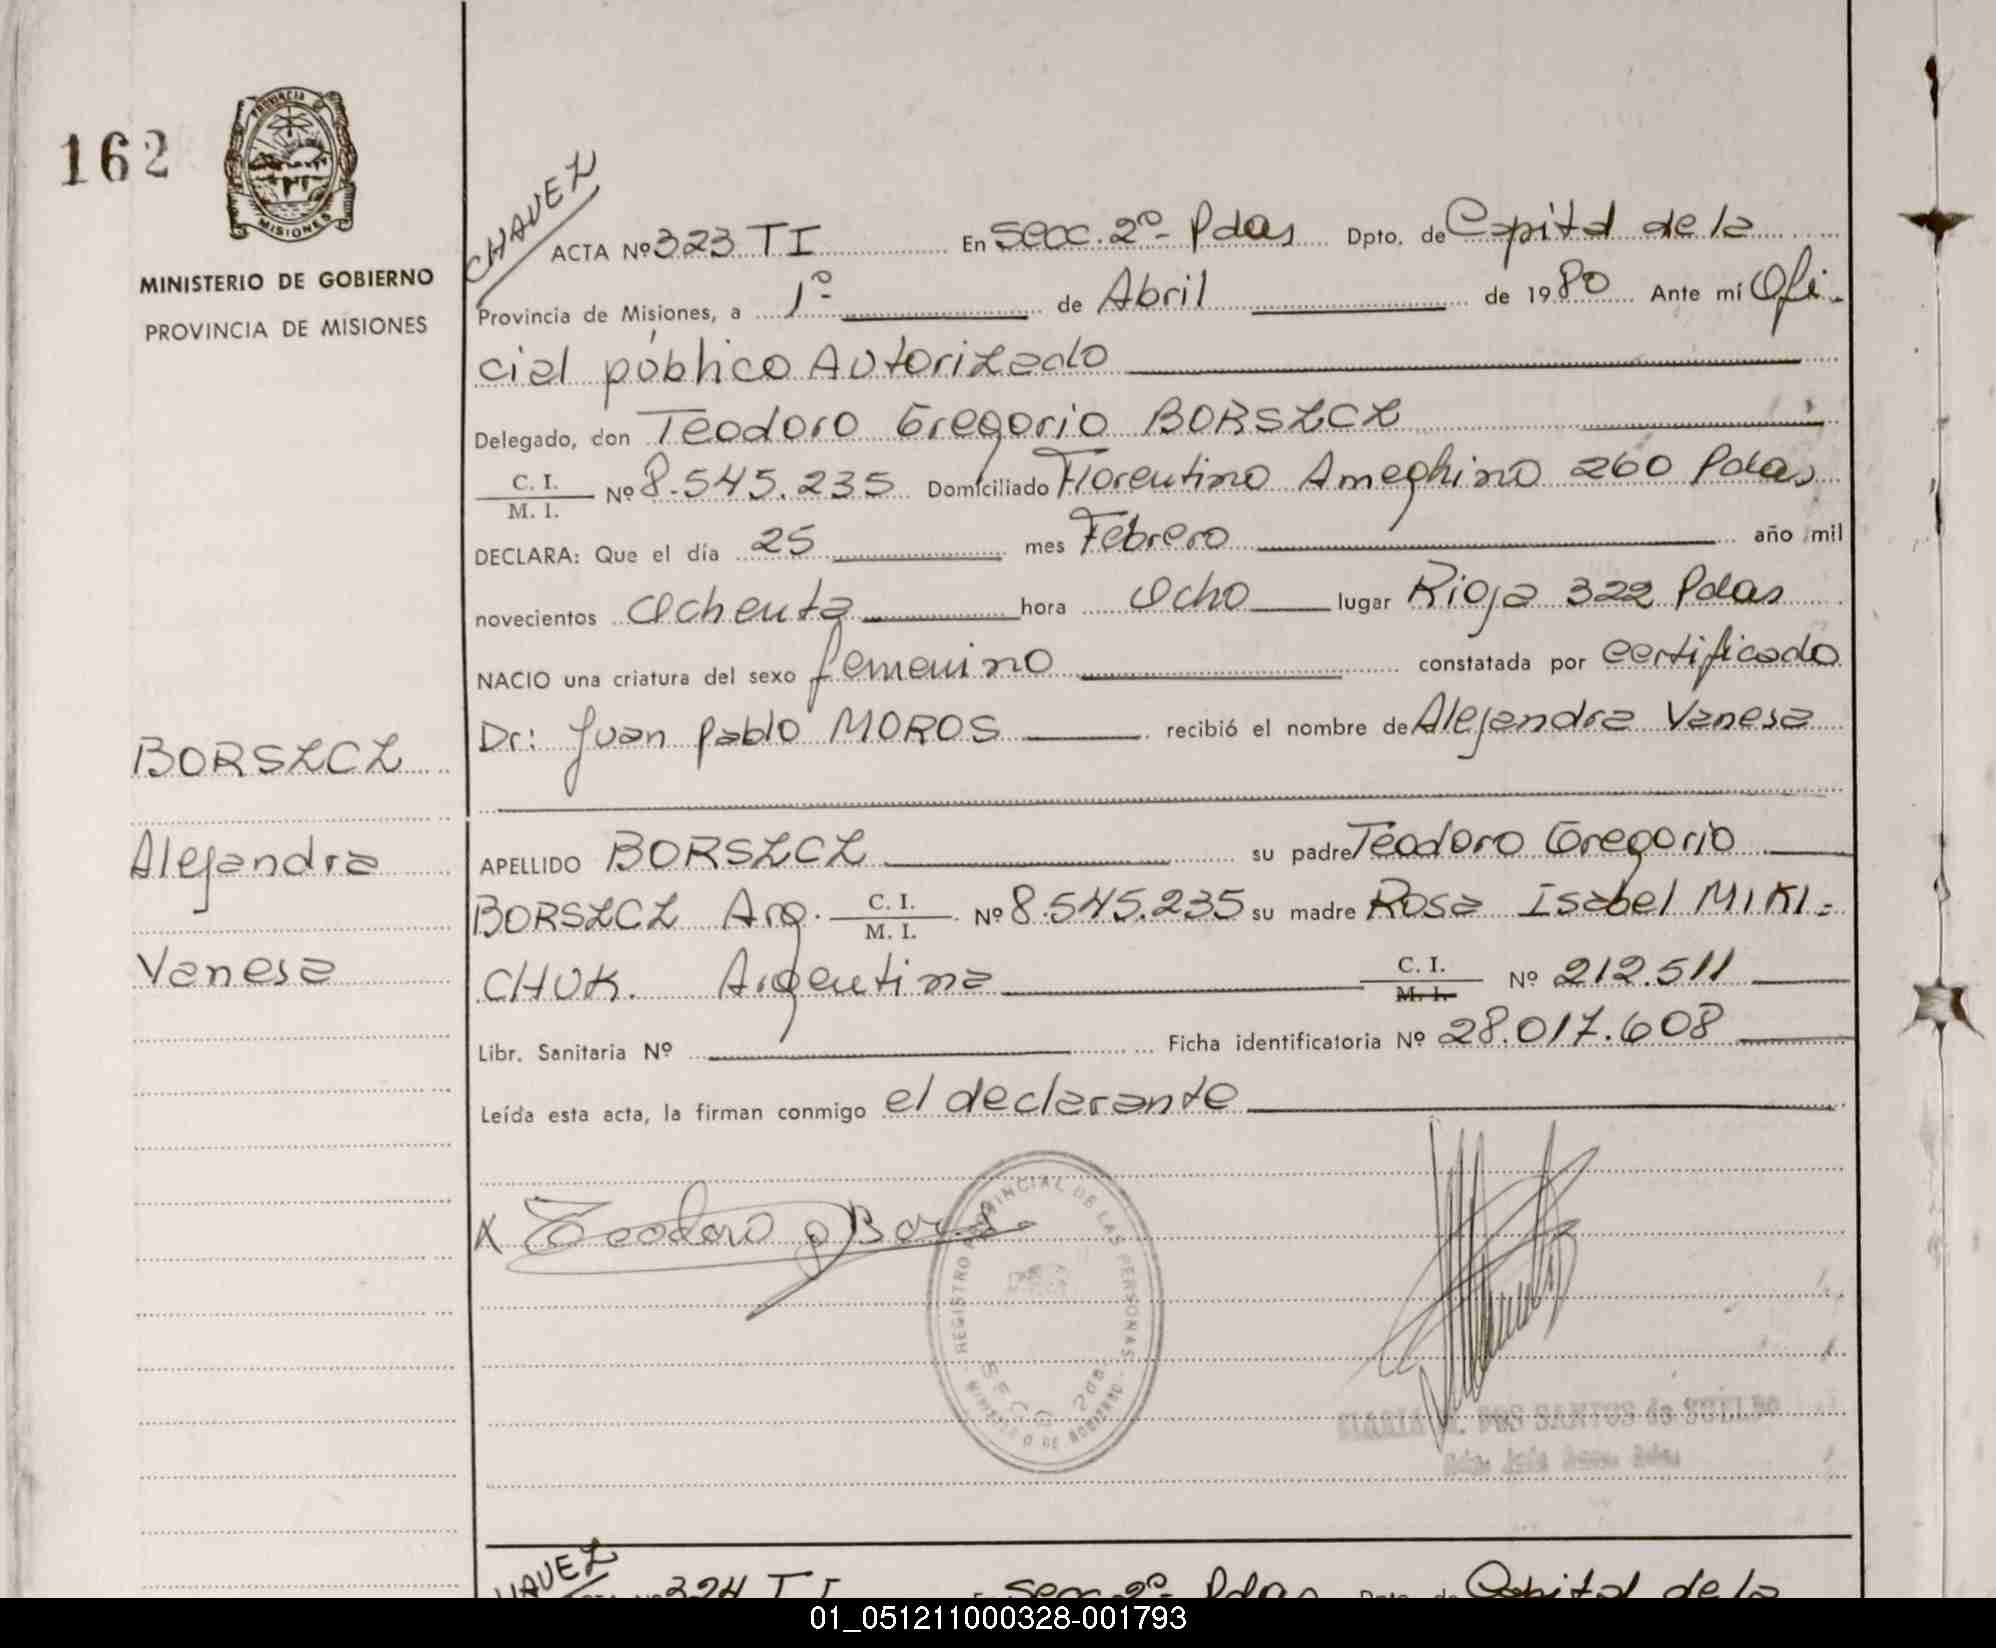 162
PROVINCIA DE
MISIONES
MINISTERIO DE GOBIERNO
PROVINCIA DE MISIONES
CHAVEZ
ACTA Nº 323 TI En Secc. 2º- Pdas Dpto. de Capital de la
Provincia de Misiones, a 1º- de Abril de 1980 Ante mí Ofi-
cial público Autorizado
Delegado, don Teodoro Gregorio BORSZCZ
C. I.
M. I. Nº 8.545.235 Domiciliado Florentino Ameghino 260 Pdas
DECLARA: Que el día 25 mes Febrero año mil
novecientos Ochenta hora Ocho lugar Rioja 322 Pdas
NACIO una criatura del sexo femenino constatada por certificado
Dr: Juan Pablo MOROS recibió el nombre de Alejandra Vanesa
BORSZCZ
Alejandra
Vanesa
APELLIDO BORSZCZ su padre Teodoro Gregorio
BORSZCZ Arg. C. I. M. I. Nº 8.545.235 su madre Rosa Isabel MIKI-
CHUK. Argentina C. I. M. I. Nº 212.511
Libr. Sanitaria Nº Ficha identificatoria Nº 28.017.608
Leída esta acta, la firman conmigo el declarante
X Teodoro g Bors
REGISTRO PROVINCIAL DE LAS PERSONAS
MINISTERIO DE GOBIERNO
SECC 2da
DOS SANTOS de
CHAVEZ
324 TI Secc. 2º- Pdas Dpto. de Capital de la
01_051211000328-001793